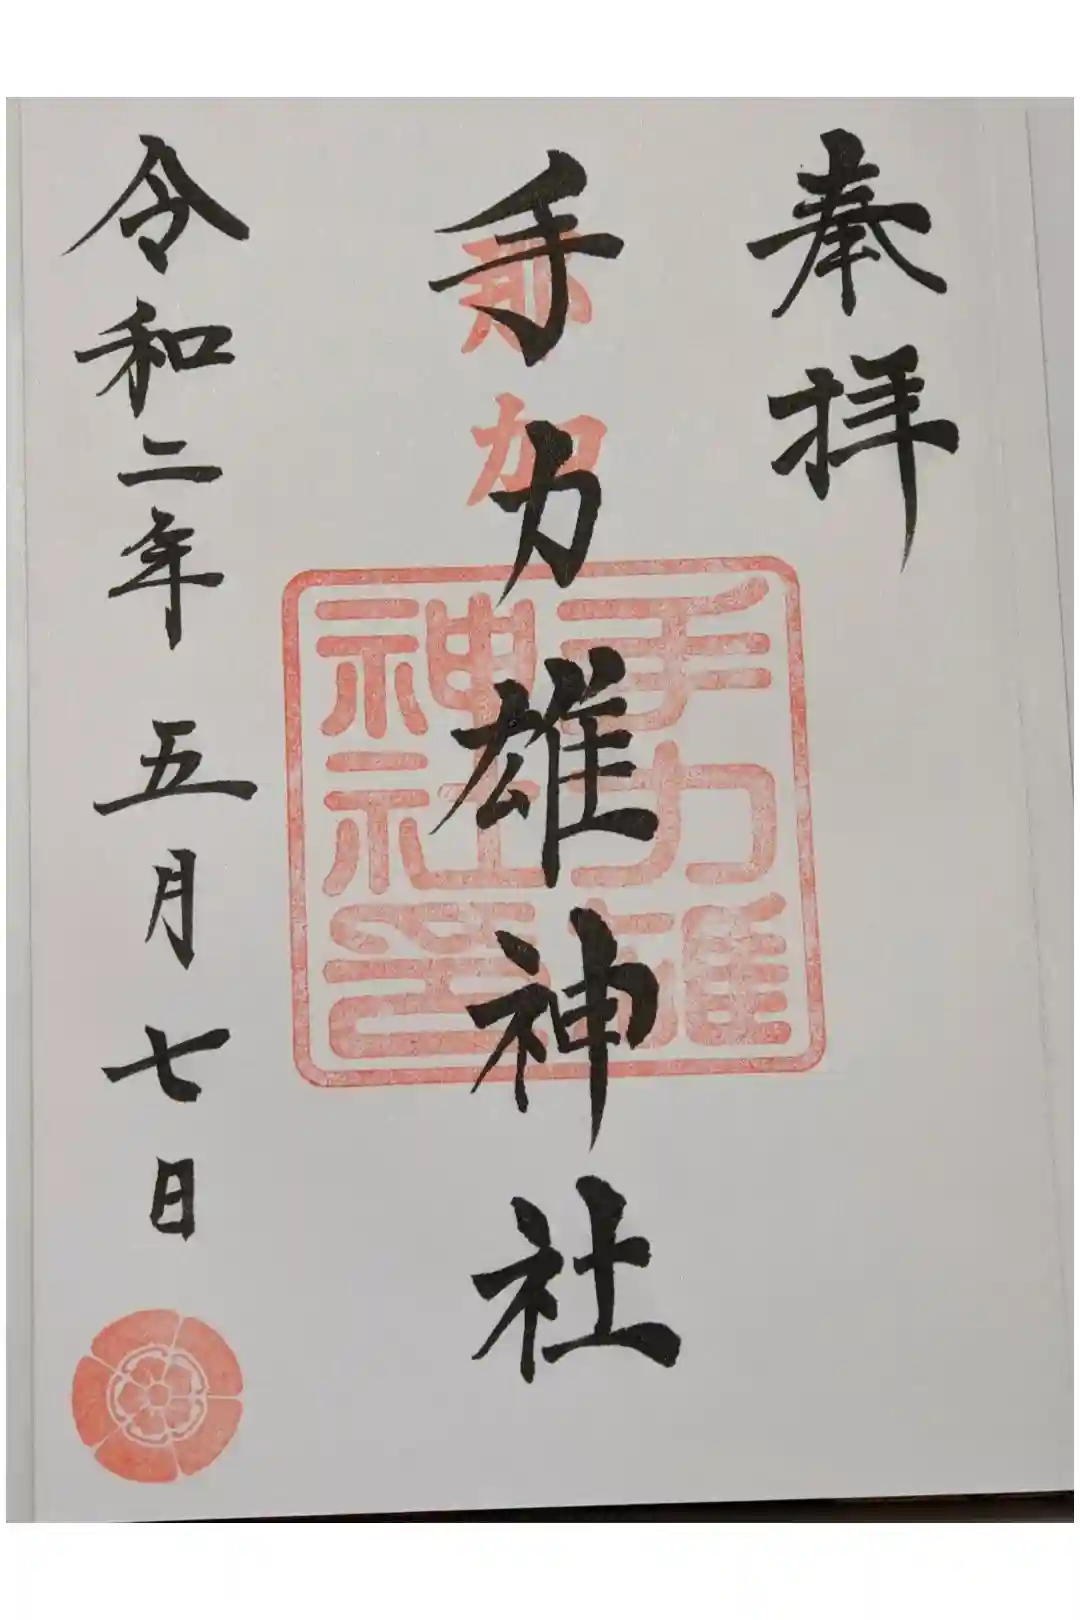 奉拝
手力雄神社
那加
手力雄
神社印
令和二年五月七日